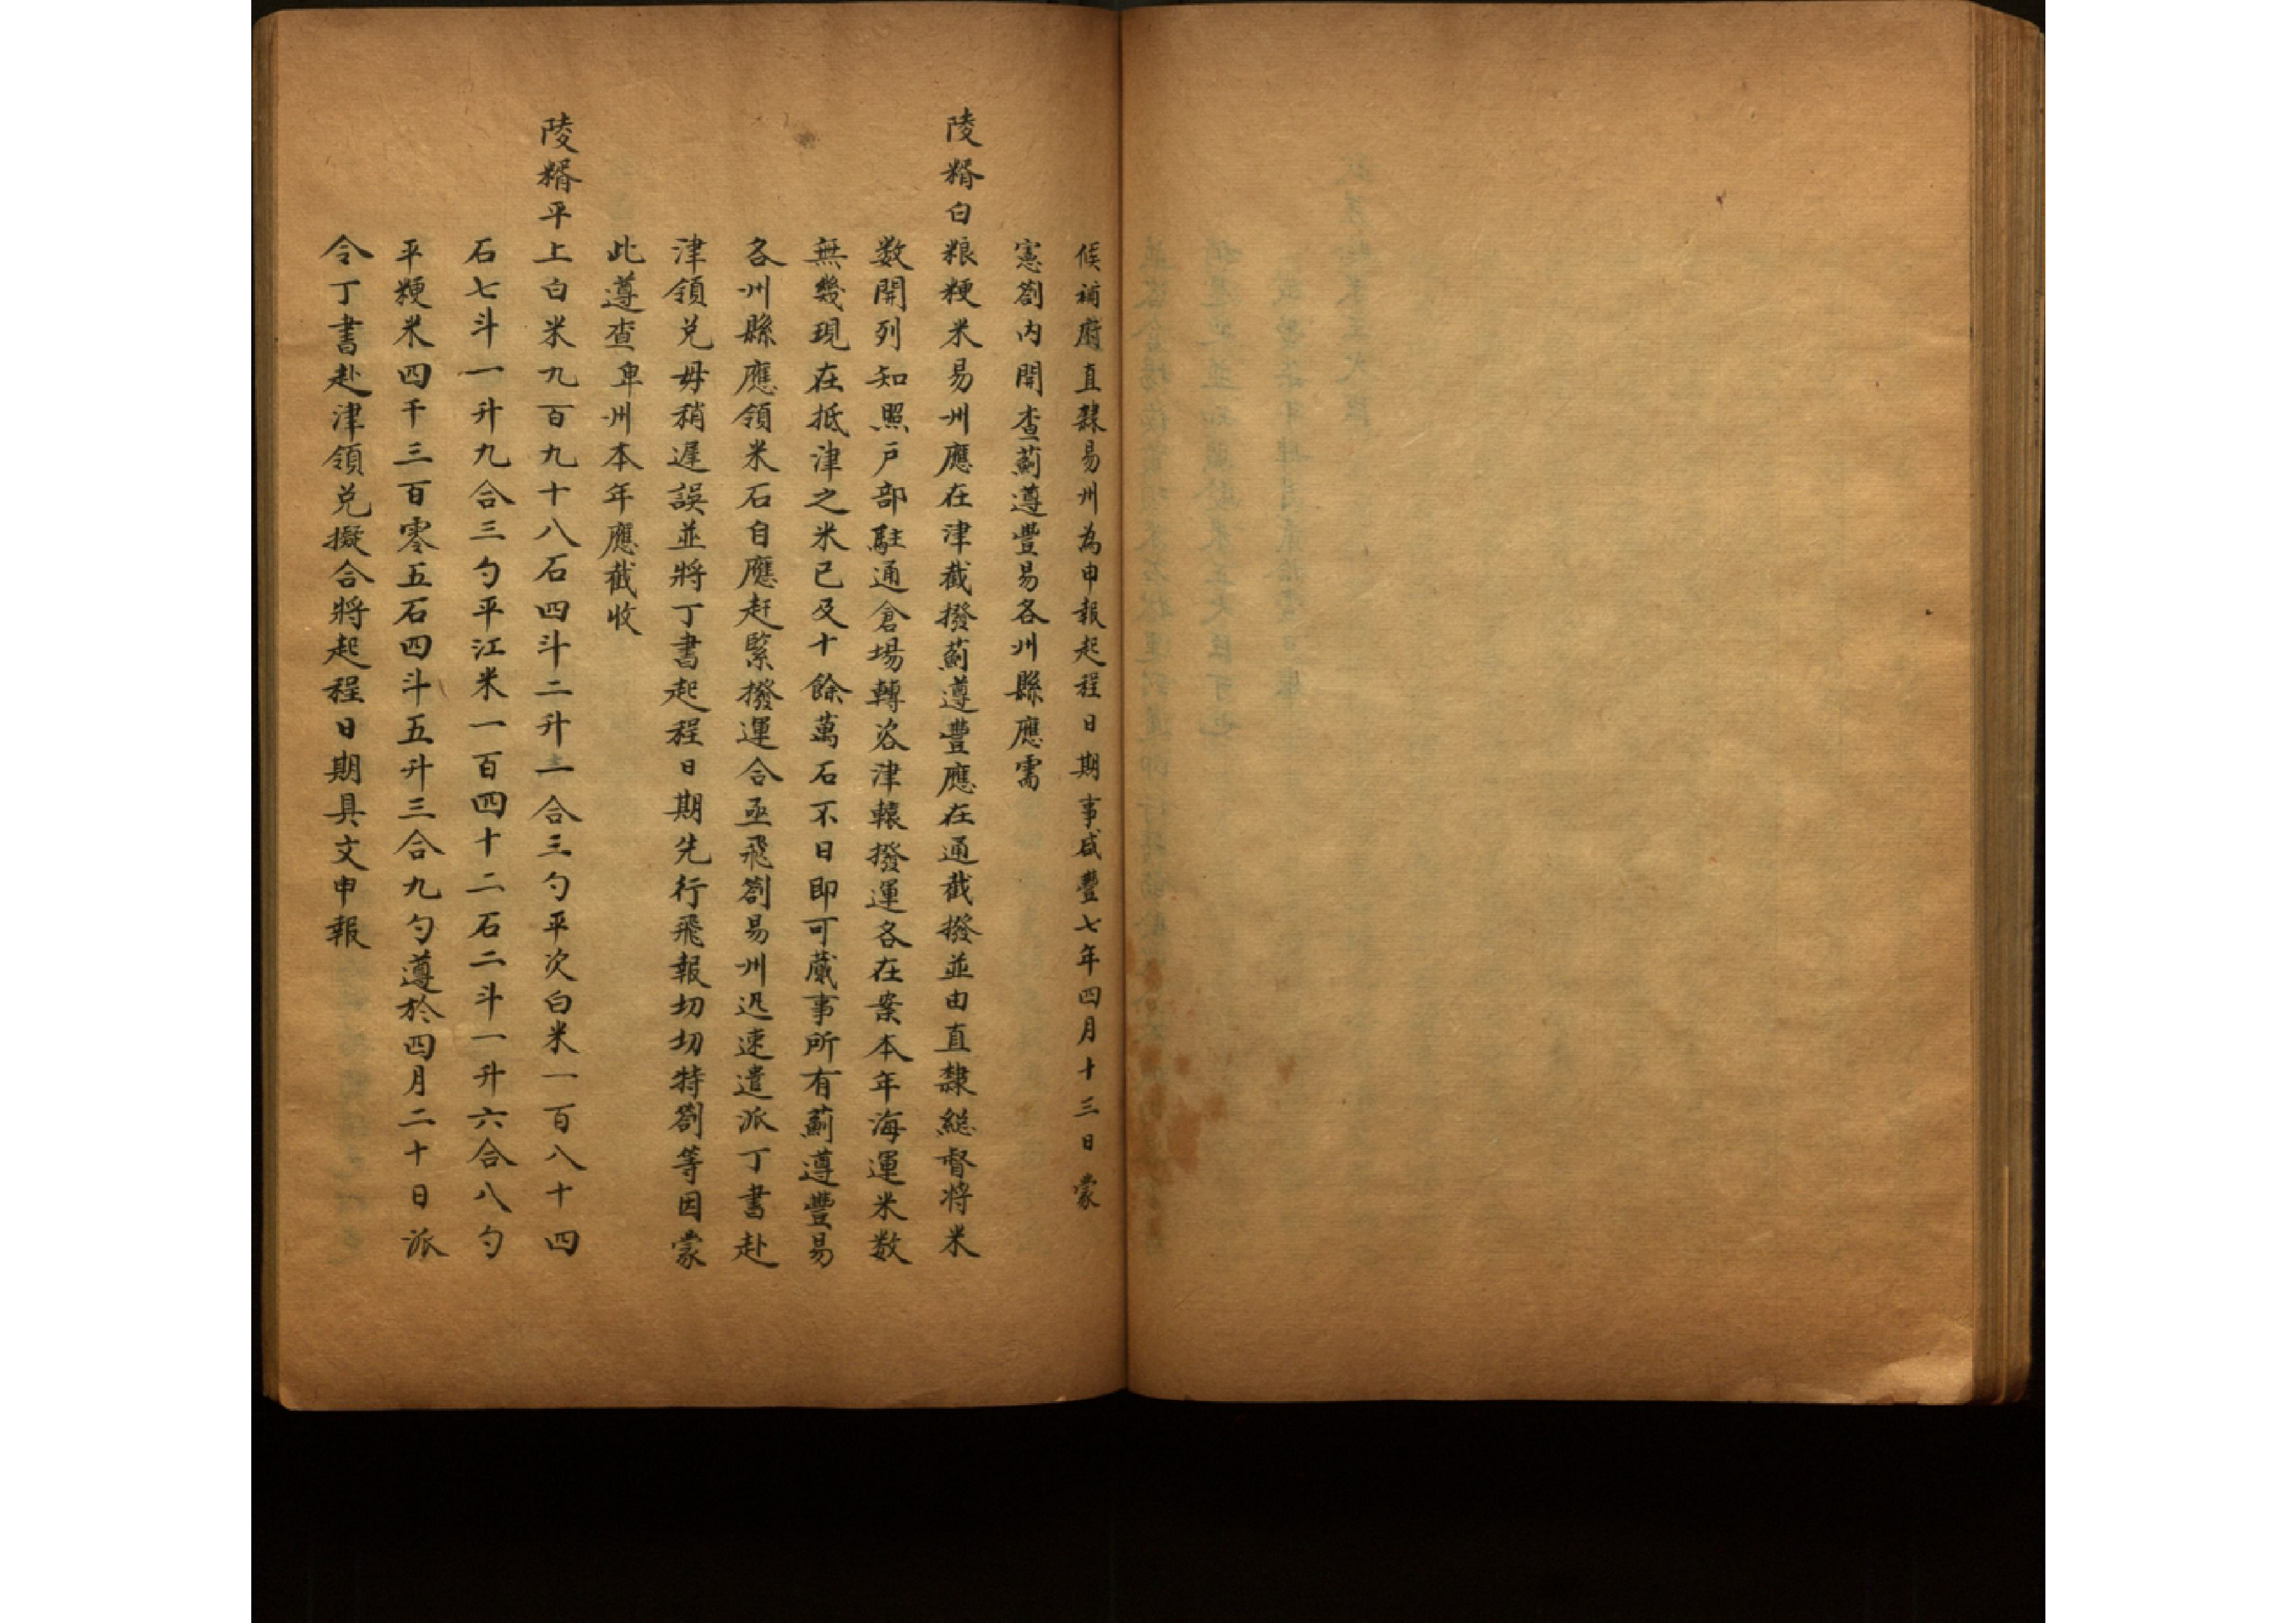 候補府直隸易州為申報起程日期事咸豐七年四月十三日蒙
憲劄内開查薊遵豐易各州縣應需
陵糈白粮粳米易州應在津截撥薊遵豐應在通截撥並由直隸総督將米
数開列知照戶部駐通倉場轉咨津轅撥運各在案本年海運米数
無幾現在抵津之米已及十餘萬石不日即可蕆事所有薊遵豐易
各州縣應領米石自應赶緊撥運合亟飛劄易州迅速遣派丁書赴
津領兌毋稍遲誤並將丁書起程日期先行飛報切切特劄等因蒙
此遵查卑州本年應截收
陵糈平上白米九百九十八石四斗二升一合三勺平次白米一百八十四
石七斗一升九合三勺平江米一百四十二石二斗一升六合八勺
平粳米四千三百零五石四斗五升三合九勺遵於四月二十日派
令丁書赴津領兌擬合將起程日期具文申報